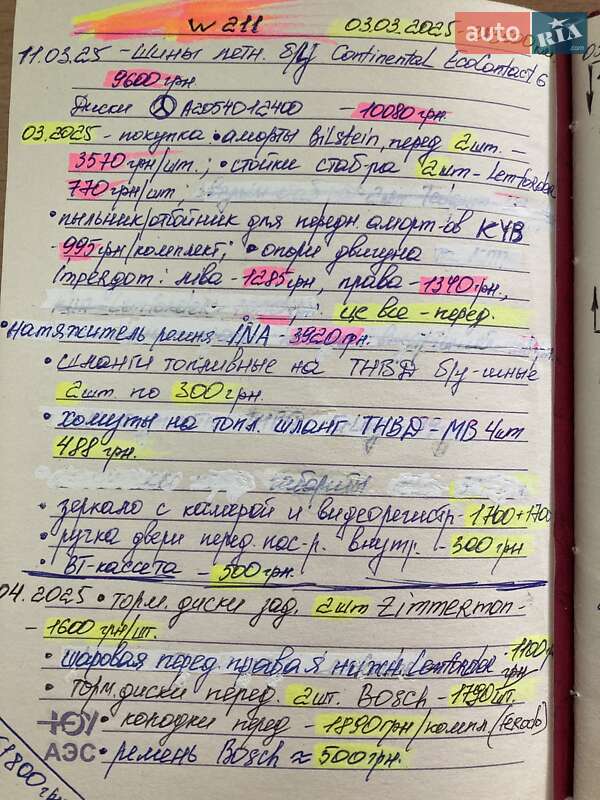 W 211 03.03.2025
auto RIA.com
11.03.25 - Шины летн. б/у Continental EcoContact 6
9600 грн
Диски A2054012400 - 10080 грн.
03.2025 - покупка • аморты Bilstein, перед 2шт. -
3570 грн/шт.; • стойки стаб-ра 2шт - Lemforder
770 грн/шт.
• пыльник/отбойник для передн. аморт-ов KYB
- 995 грн/комплект; • опори двигуна
Impergom: ліва - 1285 грн, права - 1340 грн.,
це все - перед.
• натяжитель ремня - INA - 3920 грн.
• шланги топливные на ТНВД б/у-шные
2шт. по 300 грн.
• хомуты на топл. шланг ТНВД - MB 4шт
488 грн.
габариты
• зеркало с камарой и видеорегистр - 1700 + 1700
• ручка двери перед. пас-р. внутр. - 300 грн
• BT-кассета - 500 грн.
04.2025 • торм. диски зад. 2шт Zimmermon -
- 1600 грн/шт.
• шаровая перед правая нижн. Lemforder - 1100 грн
• торм. диски перед. 2шт. Bosch - 1790 шт.
ЮУ • колодки перед - 1890 грн/компл (ferodo)
АЭС • ремень Bosch ≈ 500 грн.
1800 грн